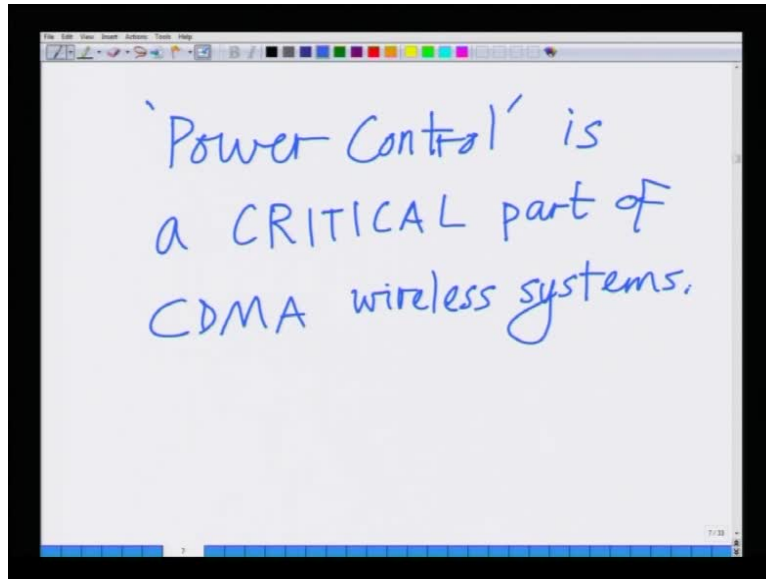 File Edit View Insert Actions Tools Help
‵Power Control′ is
a CRITICAL part of
CDMA wireless systems.
7